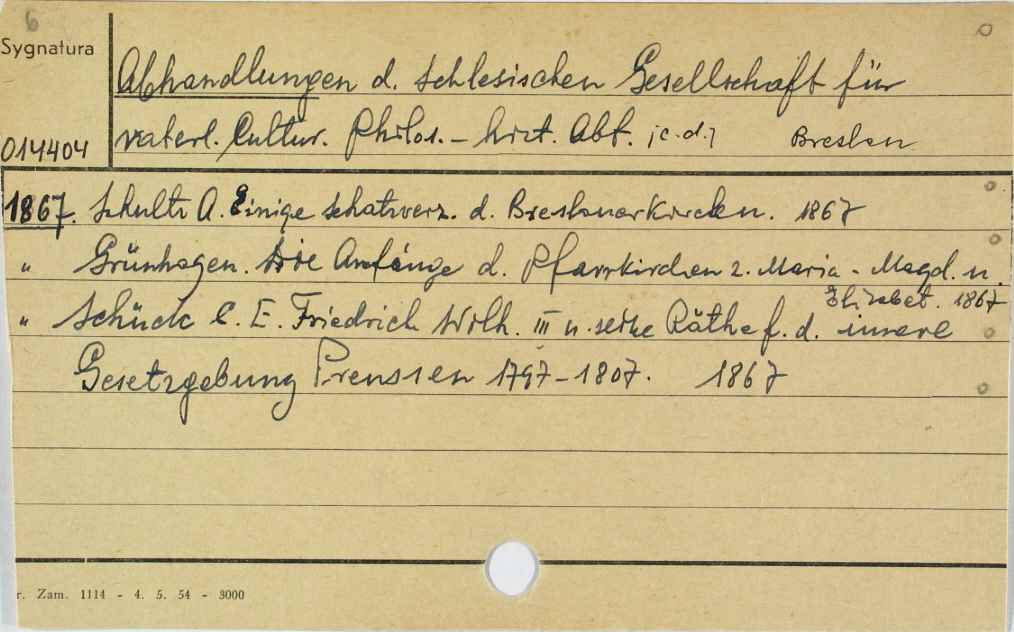 6
Sygnatura
Abhandlungen d. Schlesischen Gesellschaft für
014404
vaterl. Cultur. Philos. - hist. Abt. /c.d./ Breslau
1867. Schultz A. Einige Schatzverz. d. Breslauerkirchen. 1867
" Grünhagen. Die Anfänge d. Pfarrkirchen z. Maria - Magd. u.
Elisabet. 1867
" Schück C. E. Friedrich Wilh. III u. seine Räthe f. d. innere
Gesetzgebung Preussen 1797-1807. 1867
r. Zam. 1114 - 4. 5. 54 - 3000